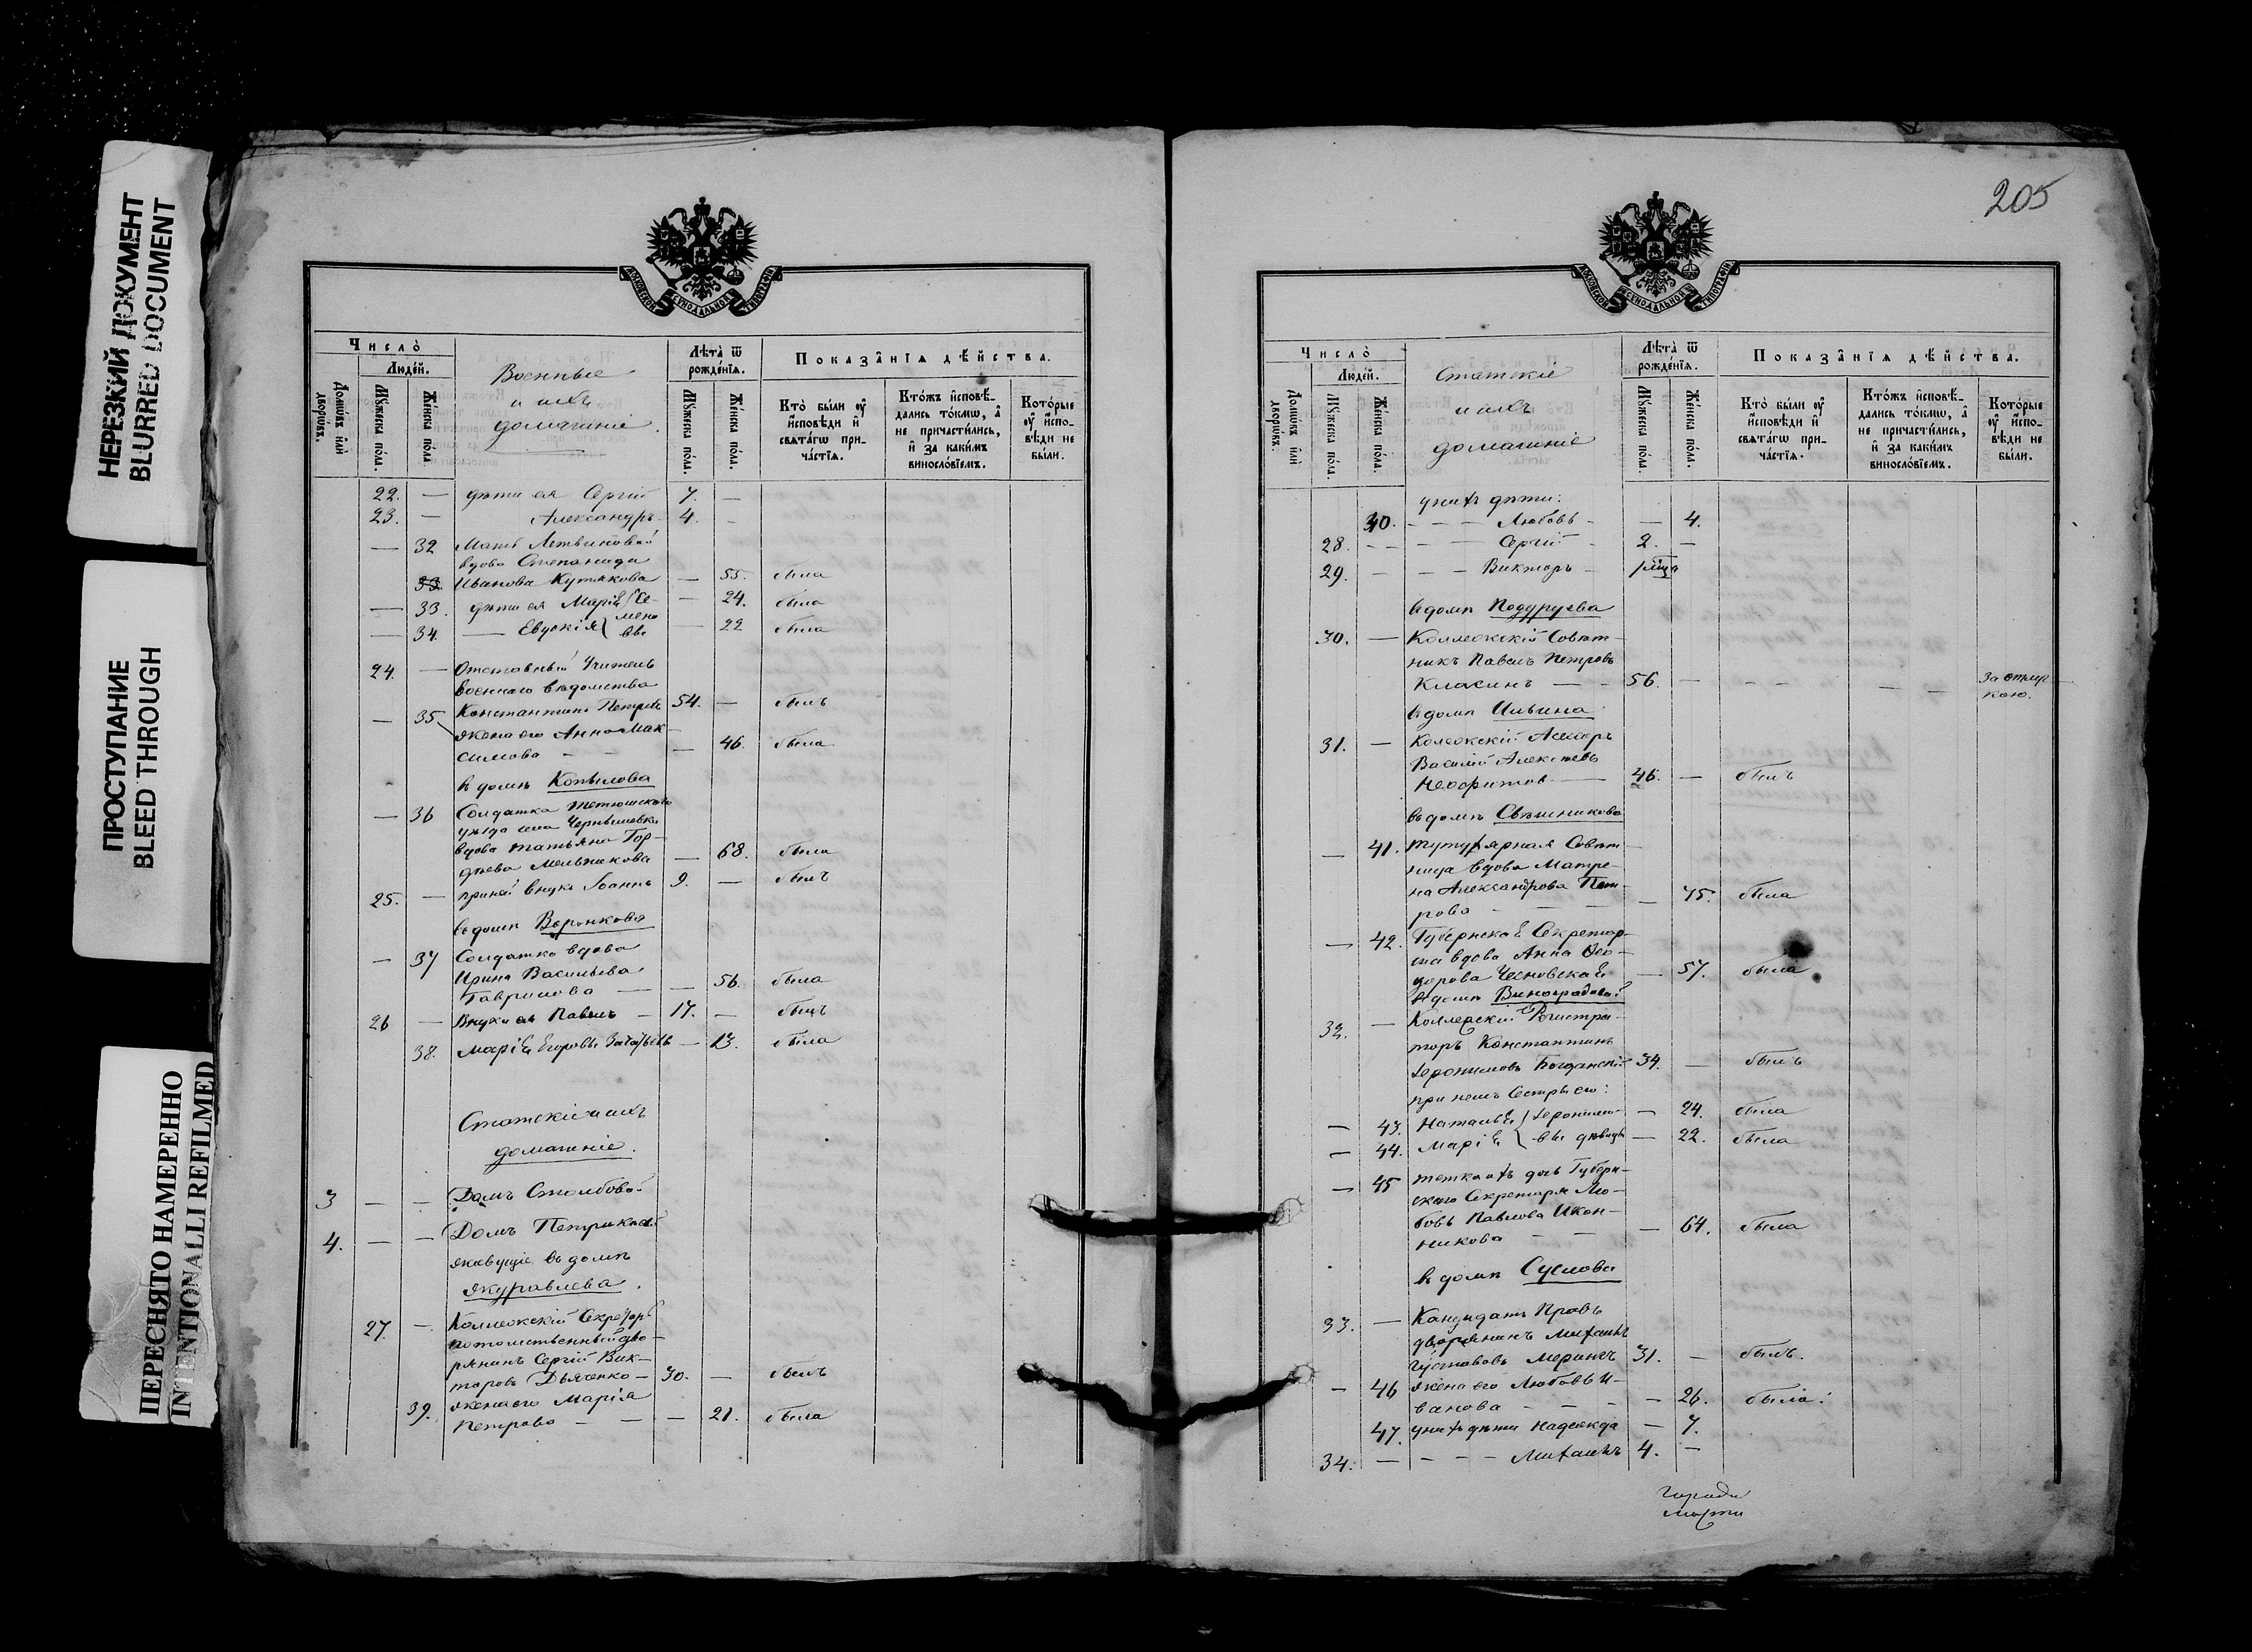 НЕРЕЗКИЙ ДОКУМЕНТ
BLURRED DOCUMENT
ПРОСТУПАНИЕ
BLEED THROUGH
ПЕРЕСНЯТО НАМЕРЕННО
INTENTIONALLI REFILMED
МОСКОВСКОЙ СѴНОДАЛЬНОЙ ТИПОГРАФІИ
Число̀
Людéй.
Домѡ́въ и҆лѝ дворѡ́въ.
Мꙋ́жеска по́ла.
Же́нска по́ла.
Военные
и ихъ
домашніе.
Лѣ́та ѿ рожде́нїѧ.
Мꙋ́жеска по́ла.
Же́нска по́ла.
Показа̑нїѧ дѣ́йства.
Кто̀ бы́ли ᲂу҆ и҆сповѣди и҆ свѧта́гѡ причáстїѧ.
Кто́жъ и҆сповѣ́дались то́кмѡ, а҆ не причасти́лись, и҆ за каки́мъ винослóвїемъ.
Кото́рые ᲂу҆ и҆сповѣди не бы́ли.
22. — дѣти ея Сергій 7. —
23. — Александръ 4. —
— 32 Мать Летвиновой
вдова Степанида
33. Иванова Кутякова — 55. была
— 33. дѣти ея Марія Се- — 24. была
— 34. — Евдокія мено вы — 22 была
24. — Отставный Учитель
военнаго вѣдомства
Константинъ Петровъ 54. — былъ
— 35 жена его Анна Мак-
симова — — — 46. была
въ домѣ Копылова
— 36 Солдатка Тетюшскаго
уѣзда села Чернышевки
вдова Татьяна Гор-
дѣева Мельникова — 68. была
25. — при ней внукъ Іоаннъ 9. — былъ
въ домѣ Воронкова
— 37 Солдатка вдова
Ирина Васильева
Гаврилова — — 56. была
26 — Внуки ея Павелъ — 17. — былъ
38. Марія Егоровы — 13. была
Статскіе и ихъ
домашніе.
3 — — Домъ Столбовой
4. — — Домъ
живущіе въ домѣ
Журавлева.
27. — Коллежскій Секретарь
потомственный дво-
рянинъ Сергій Вик-
торовъ Дьяченко — 30. — былъ
39. жена его Марія
Петрова — — — 21. была
205
МОСКОВСКОЙ СѴНОДАЛЬНОЙ ТИПОГРАФІИ
Число̀
Людéй.
Домѡ́въ и҆лѝ дворѡ́въ.
Мꙋ́жеска по́ла.
Же́нска по́ла.
Статскіе
и ихъ
домашніе
Лѣ́та ѿ рожде́нїѧ.
Мꙋ́жеска по́ла.
Же́нска по́ла.
Показа̑нїѧ дѣ́йства.
Кто̀ бы́ли ᲂу҆ и҆сповѣди и҆ свѧта́гѡ причáстїѧ.
Кто́жъ и҆сповѣ́дались то́кмѡ, а҆ не причасти́лись, и҆ за каки́мъ винослóвїемъ.
Кото́рые ᲂу҆ и҆сповѣди не бы́ли.
у нихъ дѣти:
40. — — — Любовь — — 4.
28. — — — Сергій — 2. —
29. — — — Викторъ —
въ домѣ Подуруева
30. — Коллежскій Совѣт-
никъ Павелъ Петровъ
Класинъ — — 56. — — — — — За отлуч-
кою.
въ домѣ Ильина
31. — Коллежскій Ассесоръ
Василій Алексѣевъ
Неофитовъ — 46. — былъ
въ домѣ Свѣшникова
— 41. Титулярная Совѣт-
ница вдова Матре-
на Александрова Пет-
рова — — — — 45. была
— 42. Губернская Секретар-
ша вдова Анна Ѳео-
дорова Чесновская — 57. была
въ домѣ Виноградовой
32. — Коллежскій Регистра-
торъ Константинъ
Іеронимовъ Богданскій 34. — былъ
при немъ Сестры его:
— 43. Наталія Іерониmo- — 24. была
— 44. Марія вы дѣвицы — 22. была
— 45 тетка ихъ дочь Губерн-
скаго Секретаря Лю-
бовь Павлова Икон-
никова — — — 64. была
въ домѣ Суслова
33. — Кандидатъ Правъ
дворянинъ Михаилъ
Густавовъ Мерингъ 31. — былъ.
— 46 жена его Любовь И-
ванова — — — — 26. была:
47. у нихъ дѣти Надежда — 7.
34. — — — — Михаилъ 4. —